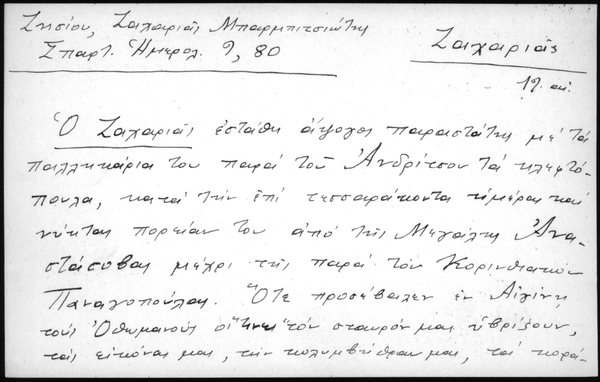 Ζησίου, Ζαχαριᾶς Μπαρμπιτσιώτης
Σπαρτ. Ἡμερολ. 9, 80
Ζαχαριᾶς
19. αἰ.
Ὁ Ζαχαριᾶς ἐστάθη ἄψογος παραστάτης μὲ τὰ
παλληκάρια του παρὰ τοῦ Ἀνδρίτσου τὰ κλεφτό-
πουλα, κατὰ τὴν ἐπὶ τεσσαράκοντα ἡμέρας καὶ
νύκτας πορείαν του ἀπὸ τῆς Μεγάλης Ἀνα-
στάσοβας μέχρι τῆς παρὰ τὸν Κορινθιακὸν
Παναγοπούλας. Ὅτε προσέβαλεν ἐν Αἰγίνῃ
τοὺς Ὀθωμανοὺς οἵτινες τὸν σταυρόν μας ὑβρίζουν,
τὰς εἰκόνας μας, τὴν κολυμβήθραν μας, τὰ κορά-